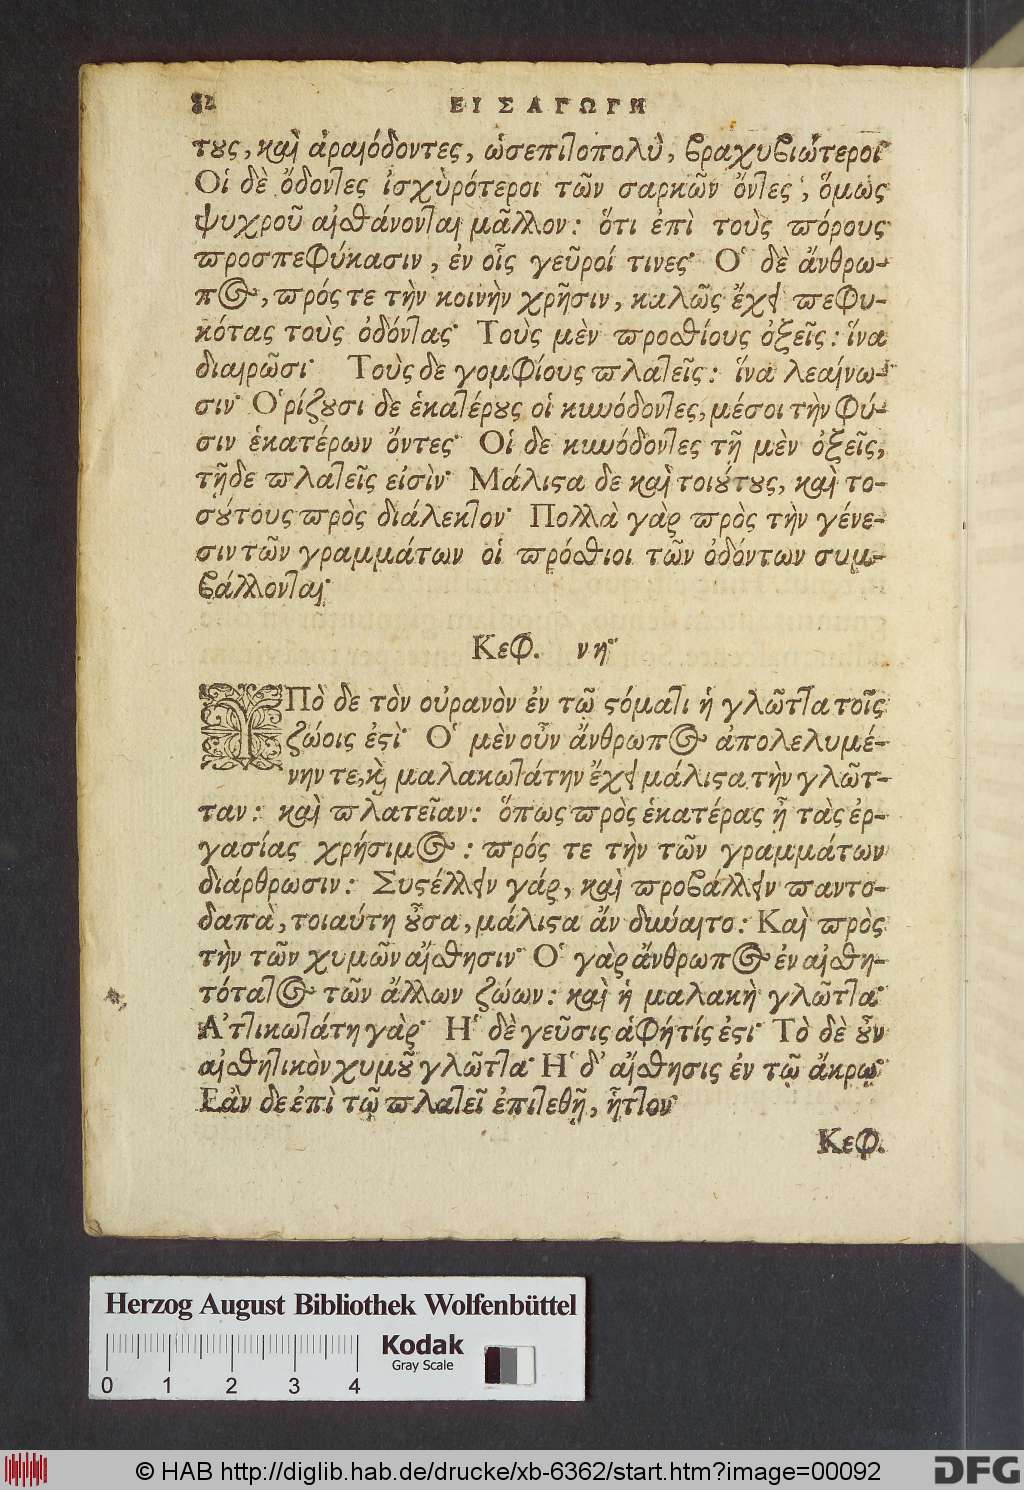 82 ΕΙΣΑΓΩΓΗ
τȣς, καὶ ἀραιόδοντες, ὡσεπιτοπολὺ, βραχυβιώτεροι
Οἱ δὲ ὄδοντες ἰσχὺρότεροι τῶν σαρκῶν ὄντες, ὅμως
ψυχροῦ αἰσθάνονται μᾶλλον: ὅτι ἐπὶ τοὺς πόρους
προσπεφύκασιν, ἐν οἷς γεῦροί τινες· Ὁ δὲ ἄνθρω-
πος, πρός τε τὴν κοινὴν χρῆσιν, καλῶς ἔχει πεφυ-
κότας τοὺς ὀδόντας· Τοὺς μὲν προσθίους ὀξεῖς: ἵνα
διαιρῶσι· Τοὺς δε γομφίους πλατεῖς: ἵνα λεαίνω-
σιν· Ὁρίζȣσι δε ἑκατέρȣς οἱ κυνόδοντες, μέσοι τὴν φύ-
σιν ἑκατέρων ὄντες· Οἱ δε κυνόδοντες τῇ μὲν ὀξεῖς,
τῇδε πλατεῖς εἰσὶν· Μάλιστα δε καὶ τοιȣ́τȣς, καὶ το-
σȣ́τους πρὸς διάλεκτον· Πολλὰ γὰρ πρὸς τὴν γένε-
σιν τῶν γραμμάτων οἱ πρόσθιοι τῶν ὀδόντων συμ-
βάλλονται·
Κεφ. νη·
ΥΠὸ δε τὸν οὐρανὸν ἐν τῷ στόματι ἡ γλῶττα τοῖς
ζώοις ἐστὶ· Ὁ μὲν οὖν ἄνθρωπος ἀπολελυμέ-
νην τε, καὶ μαλακωτάτην ἔχει μάλιστα τὴν γλῶτ-
ταν: καὶ πλατεῖαν: ὅπως πρὸς ἑκατέρας ᾖ τὰς ἐρ-
γασίας χρήσιμος: πρός τε τὴν τῶν γραμμάτων
διάρθρωσιν: Συστέλλειν γάρ, καὶ προβάλλειν παντο-
δαπὰ, τοιαύτη ȣ̓͂σα, μάλιστα ἄν δύναιτο: Καὶ πρὸς
τὴν τῶν χυμῶν αἴσθησιν· Ὁ γὰρ ἄνθρωπος ἐναισθη-
τότατος τῶν ἄλλων ζώων: καὶ ἡ μαλακὴ γλῶττα·
Ἁπτικωτάτη γὰρ· Ἡ δὲ γεῦσις ἁφήτίς ἐστι· Τὸ δὲ ȣ̓͂ν
αἰσθητικὸν χυμȣ͂ γλῶττα· Ἡ δ' αἴσθησις ἐν τῷ ἄκρῳ·
Εὰν δε ἐπὶ τῷ πλατεῖ ἐπιτεθῇ, ἧττον·
Κεφ.
Herzog August Bibliothek Wolfenbüttel
Kodak
Gray Scale
0 1 2 3 4
© HAB http://diglib.hab.de/drucke/xb-6362/start.htm?image=00092
DFG